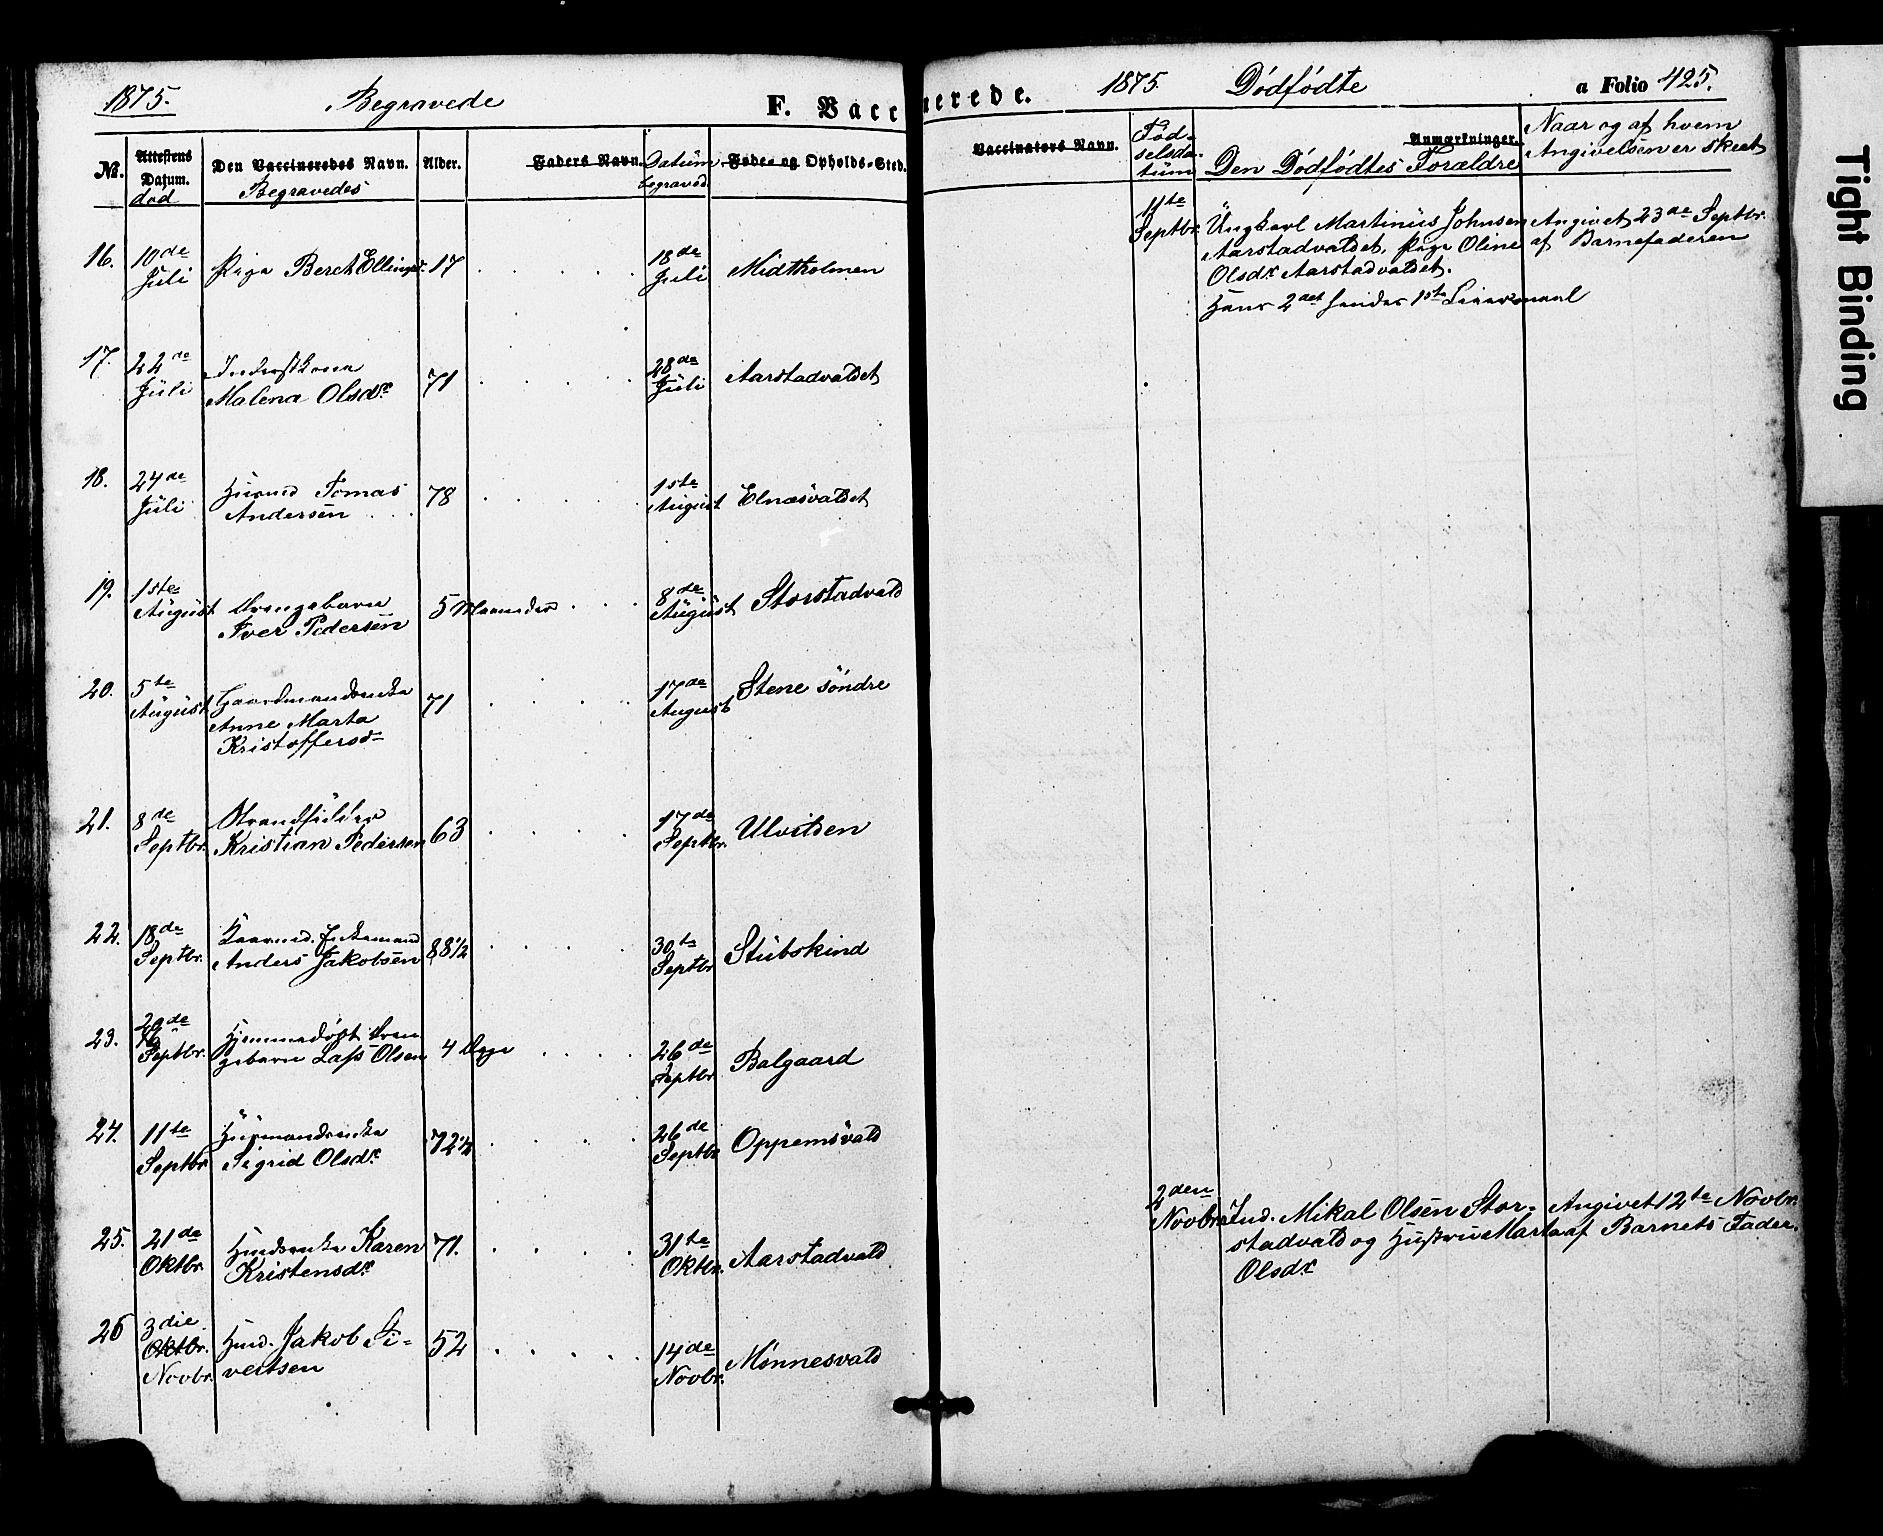 1875.
Begravede
F. Vaccinerede.
1875.
Dödfödte
a Folio 425.
No.
Attestens Datum.
död
Den Vaccineredes Navn.
Begravedes
Alder.
Faders Navn.
Datum begraved
Føde- og Opholds-Sted.
Vaccinators Navn.
Födselsdatum
Anmærkninger.
Den Dödfödtes Forældre
Naar og af hvem
Angivelsen er skeet
16.
10de
Juli
Pige Beret Ellingsd.
17
18de
Juli
Midtholmen
17.
22de
Juli
Inderstkone
Malena Olsdr
71
28de
Juli
Aarstadvaldet
18.
24de
Juli
Husmd Tomas
Andersen
78
1ste
August
Elnæsvaldet
19.
1ste
August
Drengebarn
Iver Pedersen
5 Maaneder
8de
August
Storstadvald
20.
5te
August
Gaardmandsenke
Anne Marta
Kristoffersd
71
17de
August
Stene söndre
21.
8de
Septbr.
Strandsidder
Kristian Pedersen
63
17de
Septbr.
Ulvitden
22.
18de
Septbr.
Kaarmd. Enkemand
Anders Jakobsen
88½
30te
Septbr
Stubskind
23.
Septbr.
Hjemmedöpt Dren
gebarn Lars Olsen
4 Dage
26de
Septbr
Balgaard
24.
11te
Septbr
Husmandsenke
Sigrid Olsdr
72½
26de
Septbr
Oppemsvald
25.
21de
Oktbr.
Husmdsenke Karen
Kristensdr
71.
31te
Oktbr.
Aarstadvald
26
3die
Oktbr.
Novbr.
Husmd. Jakob Si-
vertsen
52
14de
Novbr.
Monnesvald
11te
Septbr.
Ungkarl Martinus Johnsen
Aarstadvaldet, Pige Oline
Olsdr Aarstadvaldet.
Hans 2det hendes 1ste Leiermaal
Angivet 23de Septbr.
af Barnefaderen
2den
Novbr.
Ind. Mikal Olsen Stor-
stadvald og Hustru Marta
Olsdr
Angivet 12te Novbr.
af Barnets Fader.
Tight Binding